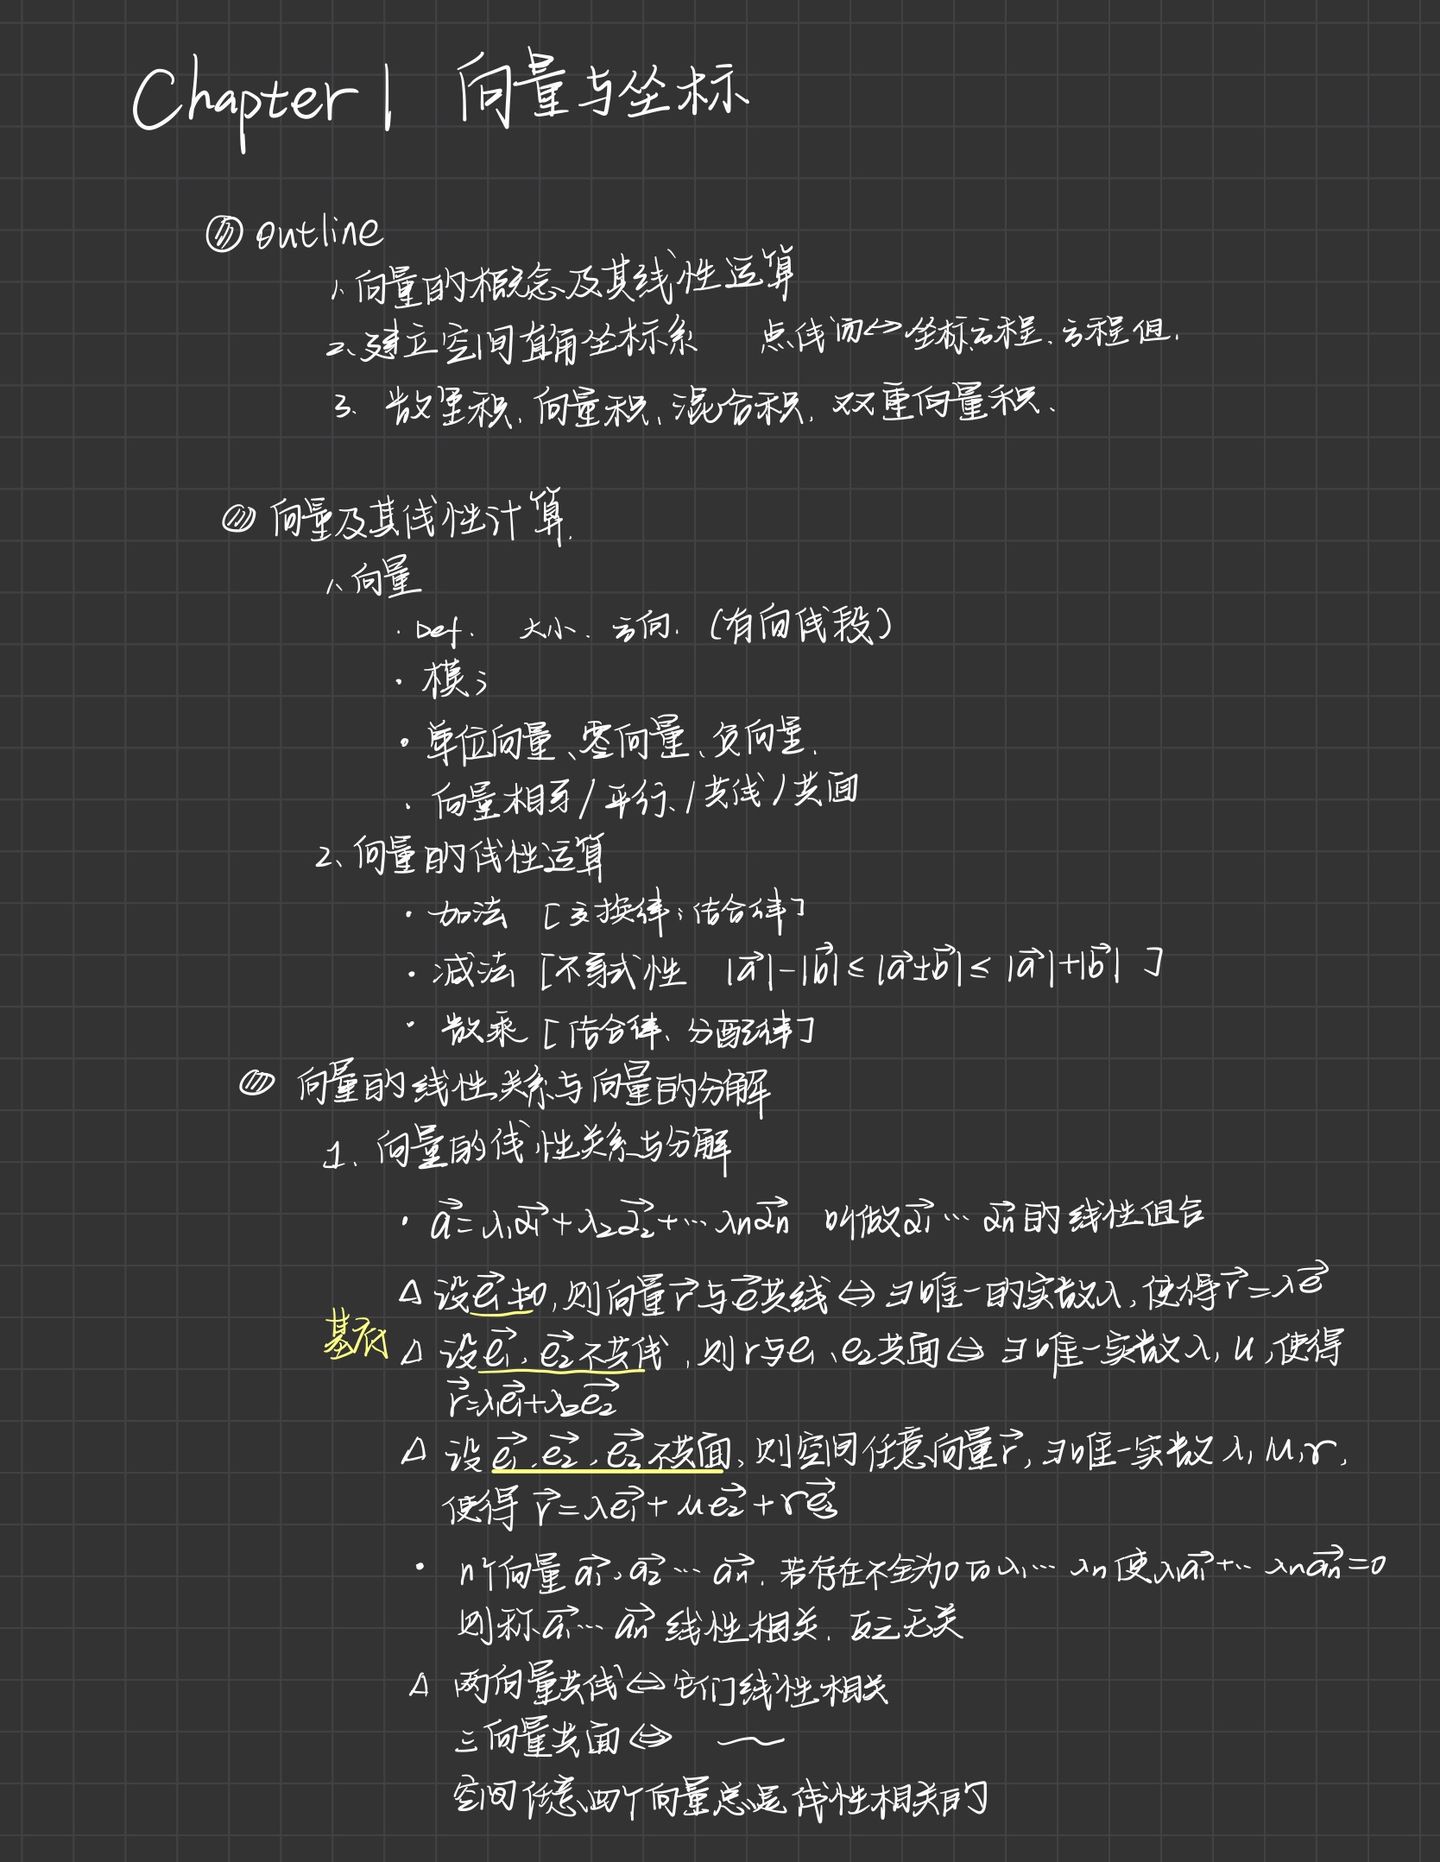 Chapter 1 向量与坐标
outline
1、向量的概念及其线性运算
2、建立空间直角坐标系 点线面⇔坐标、方程、方程组.
3、数量积、向量积、混合积、双重向量积.
向量及其线性计算.
1、向量
· Def. 大小、方向.（有向线段）
· 模；
· 单位向量、零向量、负向量.
· 向量相等/平行/共线/共面
2、向量的线性运算
· 加法 [交换律；结合律]
· 减法 [不等式性 |a⃗|-|b⃗| ≤ |a⃗±b⃗| ≤ |a⃗|+|b⃗| ]
· 数乘 [结合律、分配律]
向量的线性关系与向量的分解
1. 向量的线性关系与分解
· a⃗=λ₁a₁⃗+λ₂a₂⃗+…λnan⃗ 叫做a₁⃗…an⃗的线性组合
△ 设e₁⃗≠0,则向量r⃗与e⃗共线⇔∃唯一的实数λ,使得r⃗=λe⃗
基底 △ 设e₁⃗、e₂⃗不共线,则r与e₁、e₂共面⇔∃唯一实数λ,μ,使得
r⃗=λ₁e₁⃗+λ₂e₂⃗
△ 设e₁⃗、e₂⃗、e₃⃗不共面,则空间任意向量r⃗,∃唯一实数λ,μ,r,
使得 r⃗=λe₁⃗+μe₂⃗+re₃⃗
· n个向量a₁⃗、a₂⃗…an⃗.若存在不全为0的λ₁…λn使λ₁a₁⃗+…λnan⃗=0
则称a₁⃗…an⃗线性相关.反之无关
△ 两向量共线⇔它们线性相关
三向量共面⇔ ～
空间任意四个向量总是线性相关的